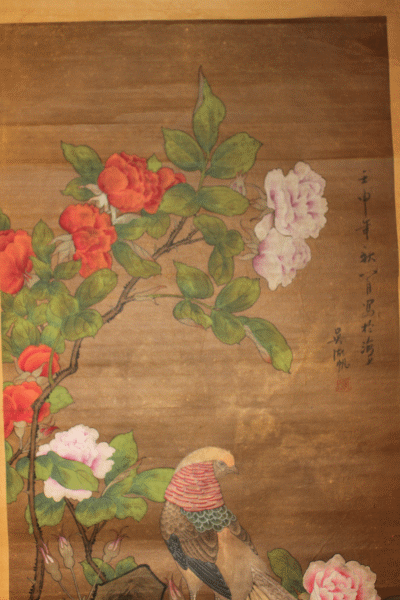 壬申年秋八月寫於海上
吳湖帆